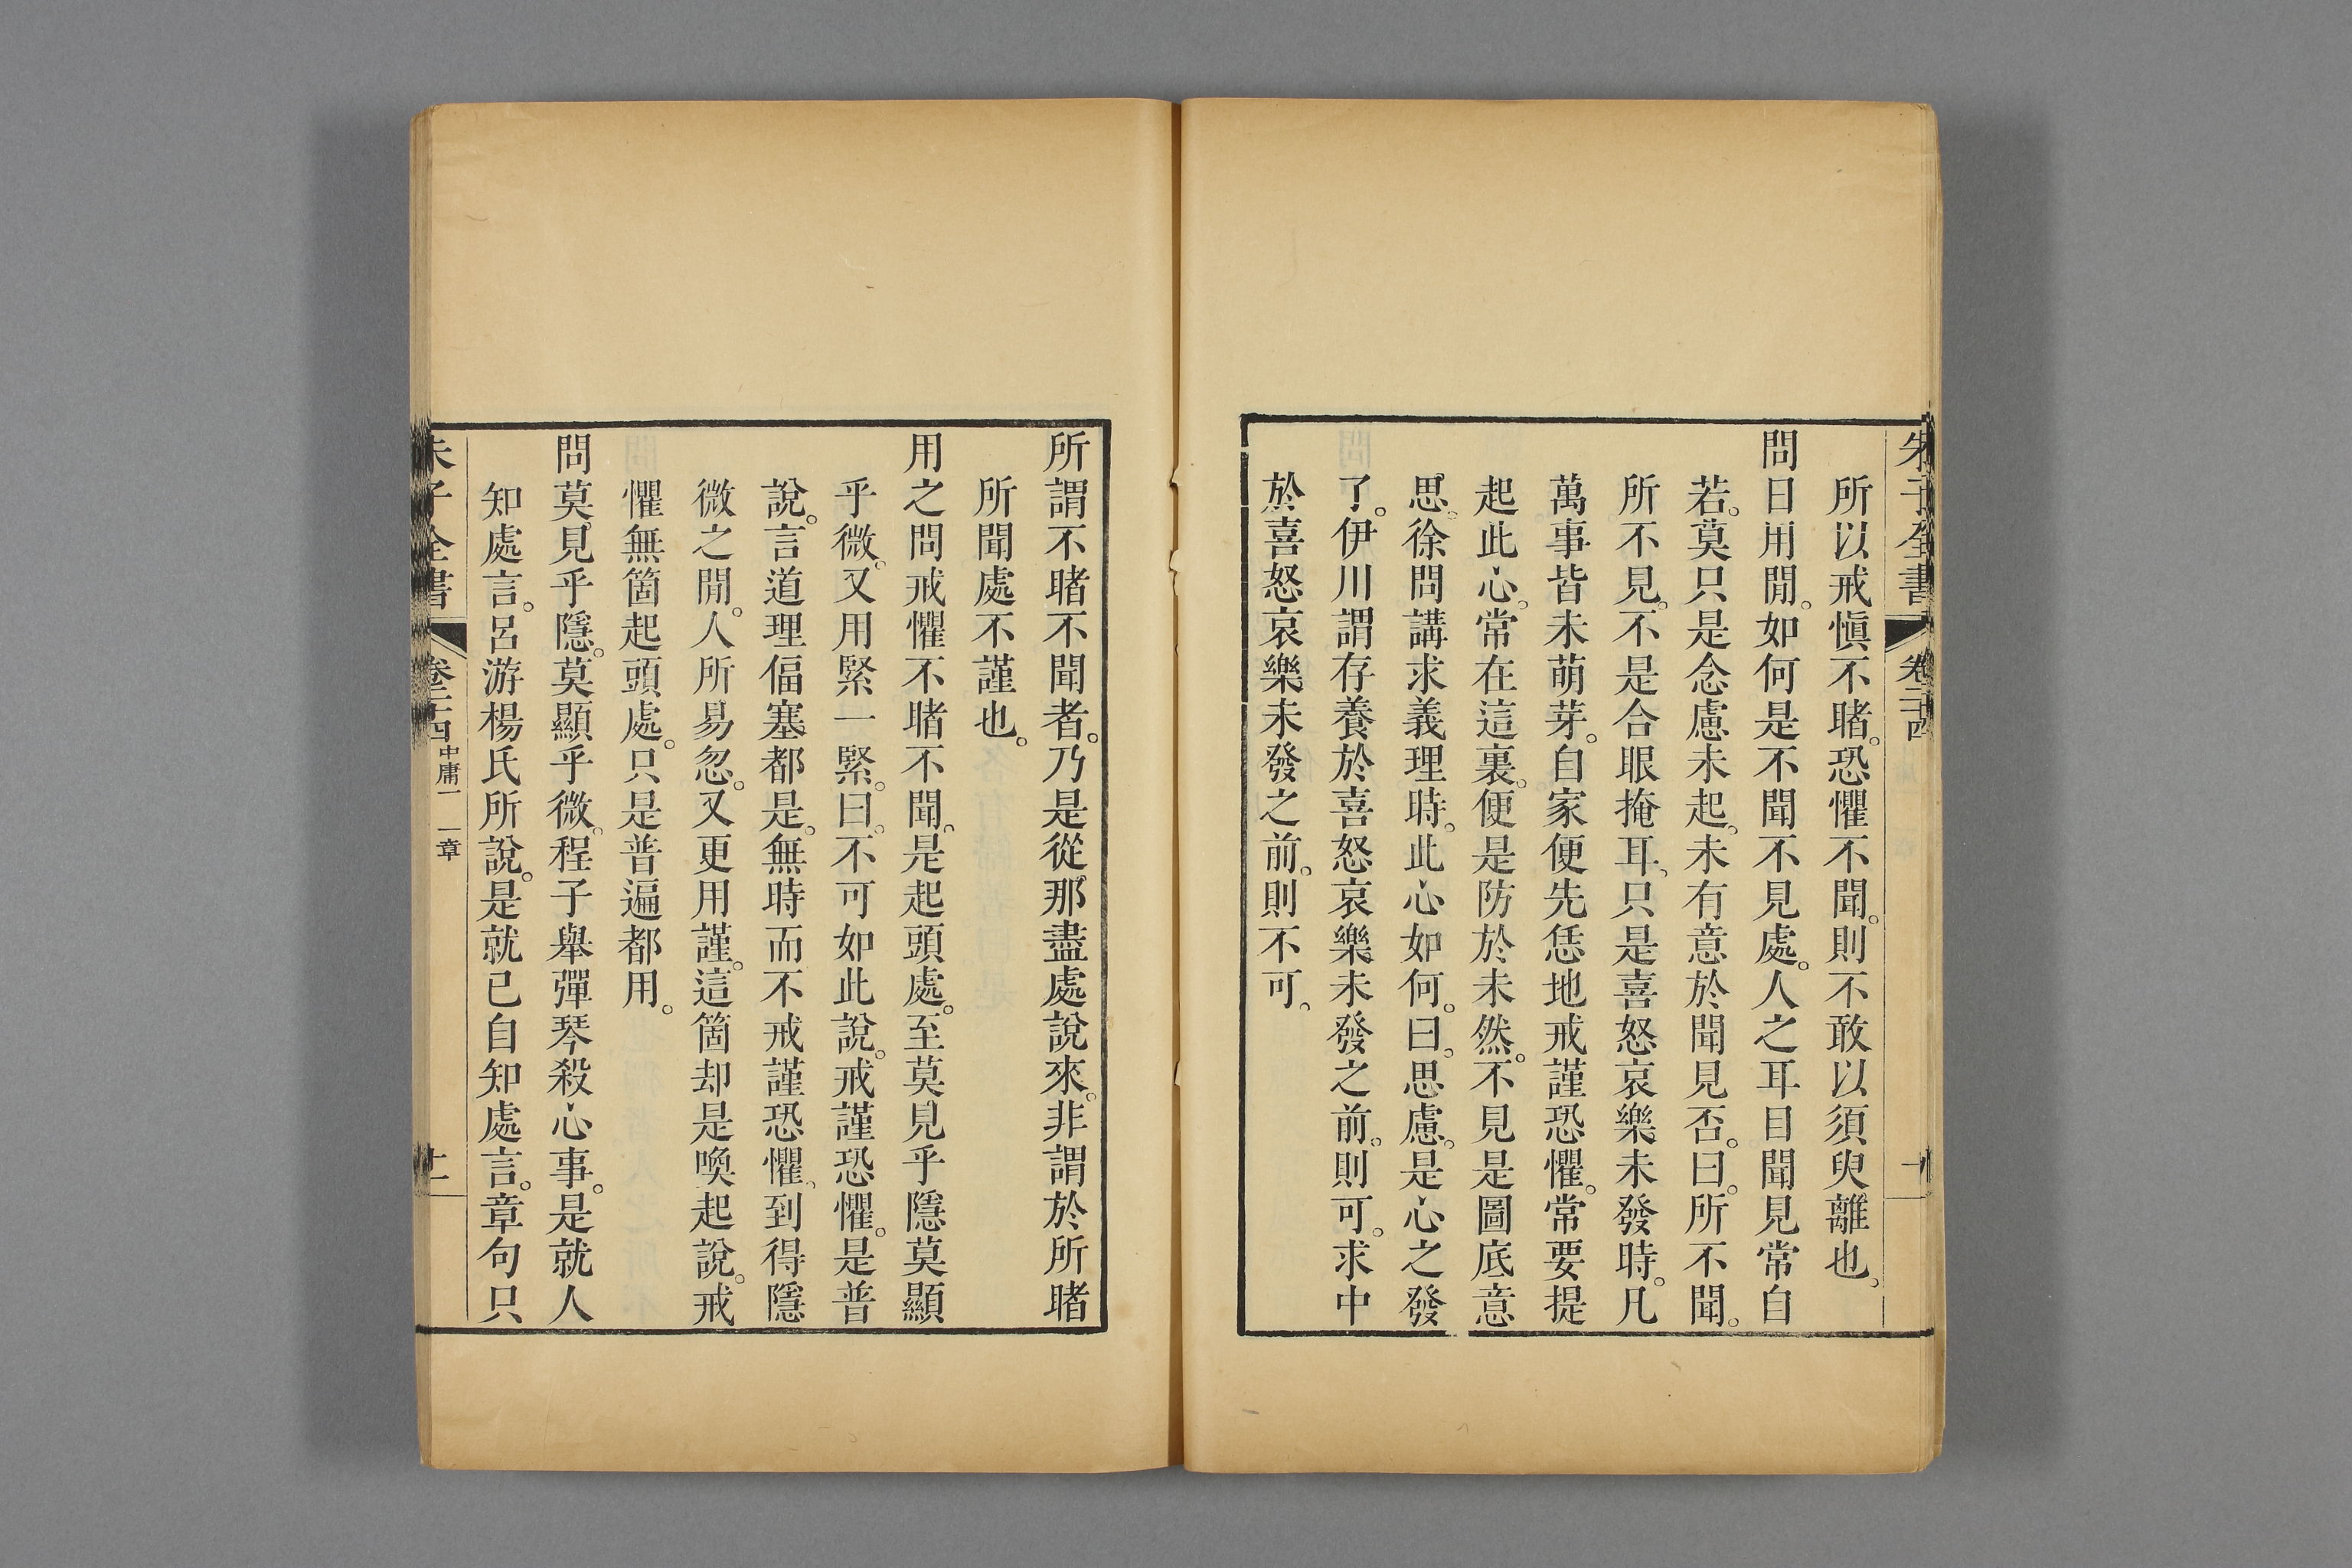 朱子全書 卷二十四
所以戒愼不睹。恐懼不聞。則不敢以須臾離也。
問日用閒。如何是不聞不見處。人之耳目聞見常自
若。莫只是念慮未起。未有意於聞見否。曰。所不聞。
所不見。不是合眼掩耳。只是喜怒哀樂未發時。凡
萬事皆未萌芽。自家便先恁地戒謹恐懼。常要提
起此心。常在這裏。便是防於未然。不見是圖底意
思。徐問講求義理時。此心如何。曰。思慮。是心之發
了。伊川謂存養於喜怒哀樂未發之前。則可。求中
於喜怒哀樂未發之前。則不可。
所謂不睹不聞者。乃是從那盡處說來。非謂於所睹
所聞處不謹也。
用之問戒懼不睹不聞。是起頭處。至莫見乎隱莫顯
乎微。又用緊一緊。曰。不可如此說。戒謹恐懼。是普
說。言道理偪塞都是。無時而不戒謹恐懼。到得隱
微之閒。人所易忽。又更用謹。這箇却是喚起說。戒
懼無箇起頭處。只是普遍都用。
問莫見乎隱。莫顯乎微。程子舉彈琴殺心事。是就人
知處言。呂游楊氏所說。是就已自知處言。章句只
朱子全書 卷二十四 中庸一 一章